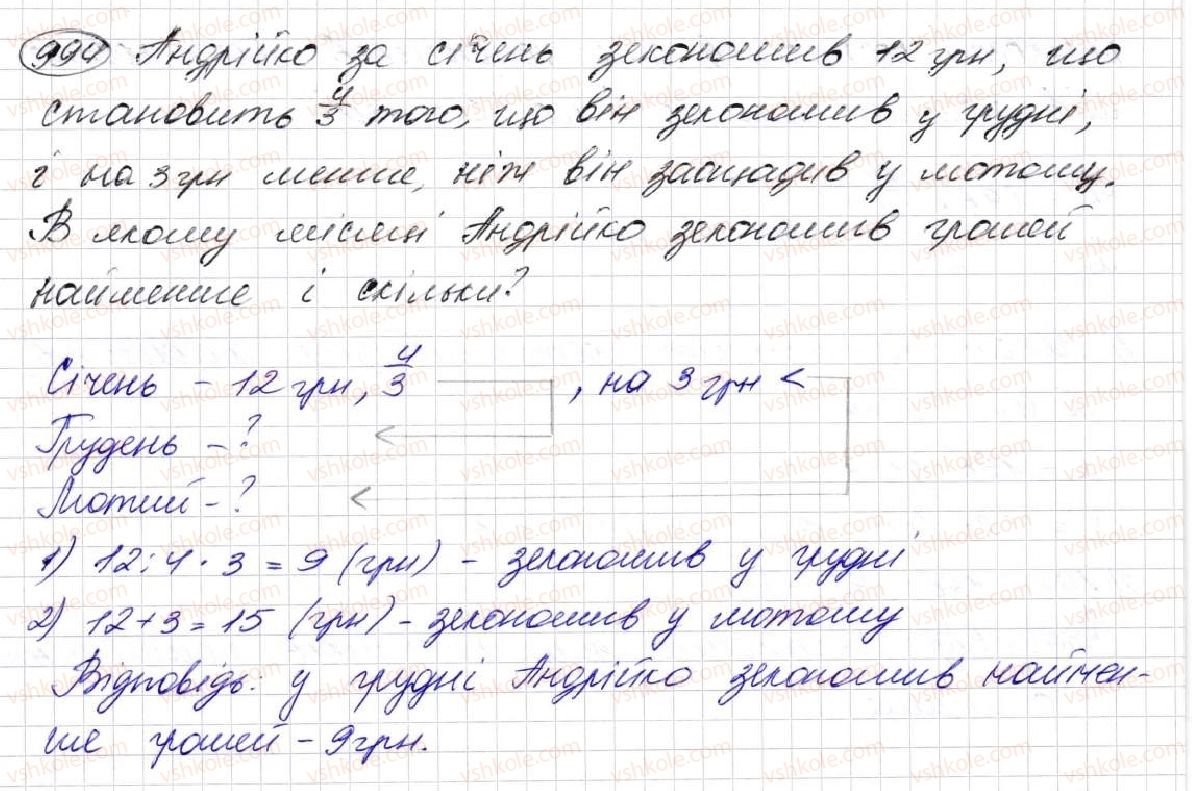 994 Андрійко за січень зекономив 12 грн, що
становить 4/3 того, що він зекономив у грудні,
і на 3 грн менше, ніж він заощадив у лютому.
В якому місяці Андрійко зекономив грошей
найменше і скільки?
Січень - 12 грн, 4/3 , на 3 грн <
Грудень - ? <
Лютий - ? <
1) 12 : 4 · 3 = 9 (грн) - зекономив у грудні
2) 12 + 3 = 15 (грн) - зекономив у лютому
Відповідь: у грудні Андрійко зекономив наймен-
ше грошей - 9 грн.
vshkole.com